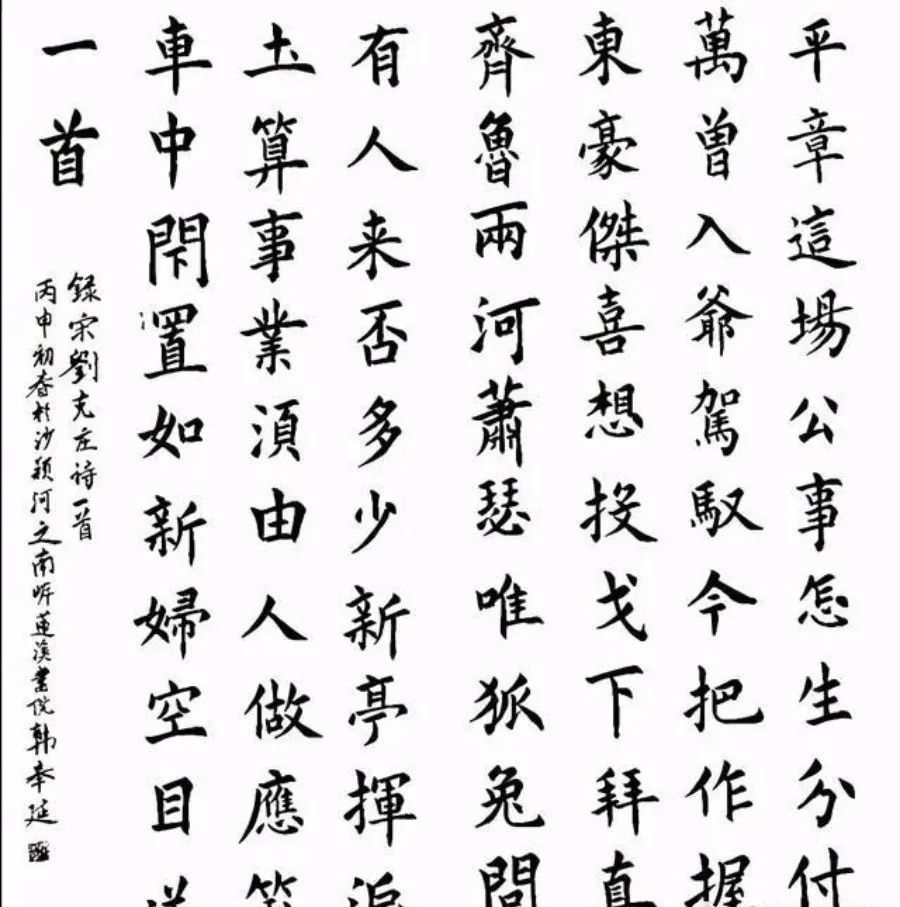 平章這場公事怎生分付
萬曾入爺駕馭今把作握
東豪傑喜想投戈下拜真
齊魯兩河蕭瑟唯狐兔問
有人来否多少新亭揮
土算事業湏由人做應
車中閇置如新婦空目
一首
録宋劉克庄诗一首
丙申初春於沙颖河之南岸莲溪書院韓奉延